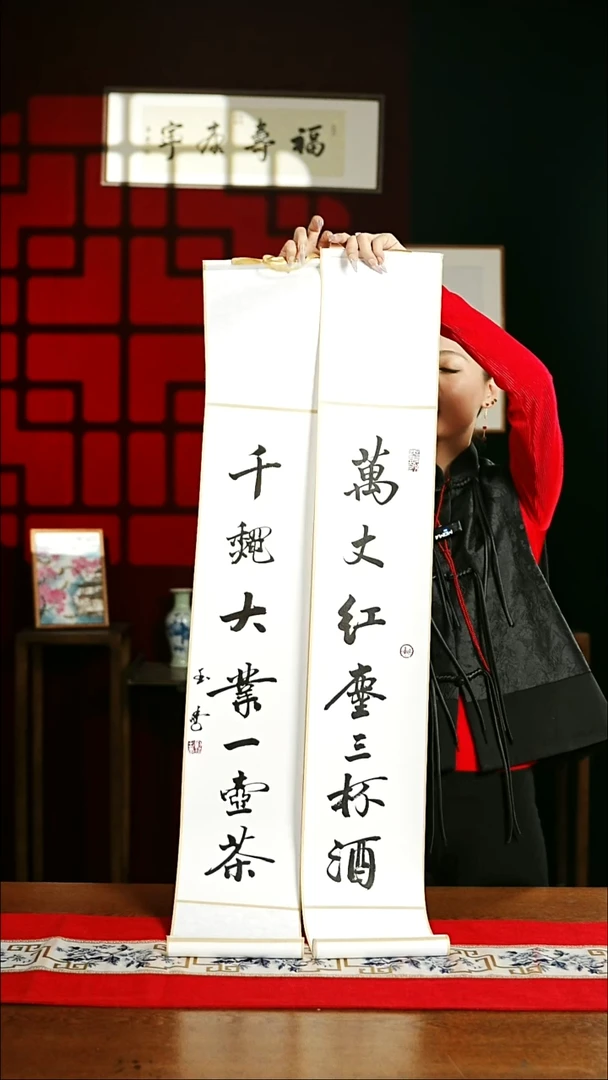 福壽康寧
萬丈红塵三杯酒
千龝大業一壺茶